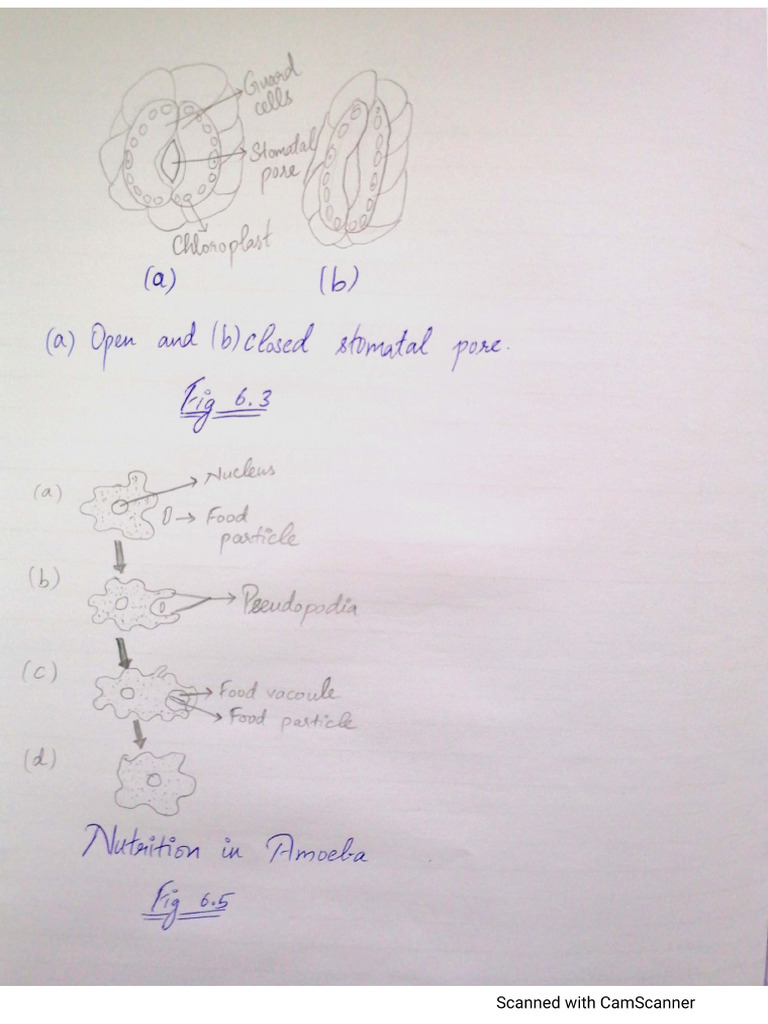 Guard
cells
Stomatal
pore
Chloroplast
(a)
(b)
(a) Open and (b) closed stomatal pore.
Fig 6.3
(a)
Nucleus
Food
particle
(b)
Pseudopodia
(c)
Food vacoule
Food particle
(d)
Nutrition in Amoeba
Fig 6.5
Scanned with CamScanner